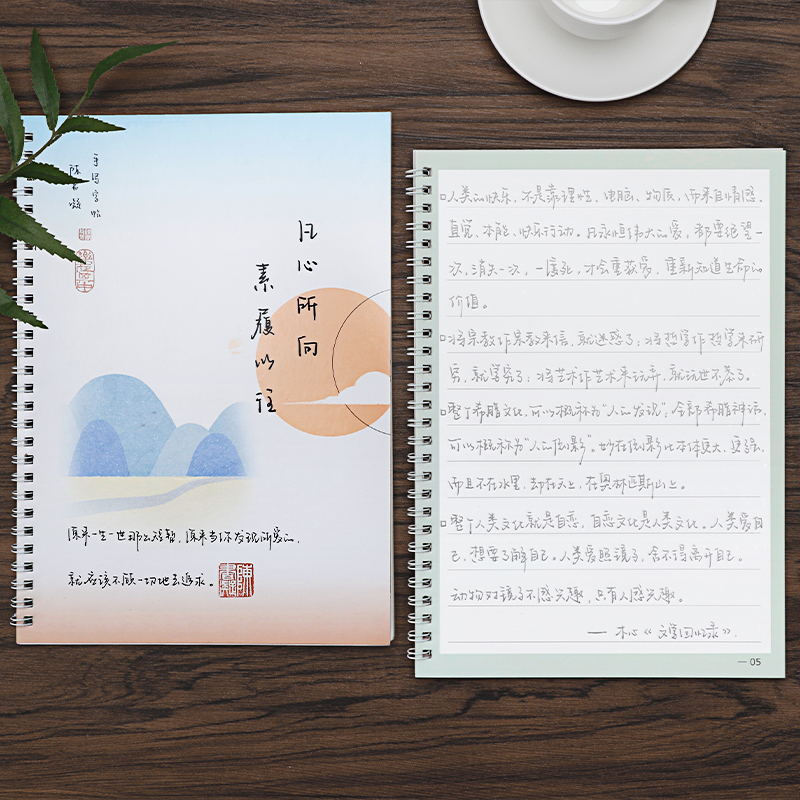 手写字帖
陈書凝
凡心所向
素履以往
原来一生一世那么短暂,原来当你发现所爱的,
就应该不顾一切地去追求。
人类的快乐,不是靠理性、电脑、物质,而来自情感、
直觉、本能、快乐行动。凡永恒伟大的爱,都要绝望一
次,消失一次,一度死,才会重获爱,重新知道生命的
价值。
将宗教作宗教来信,就迷惑了;将哲学作哲学来研
究,就学究了;将艺术作艺术来玩弄,就玩世不恭了。
整个希腊文化,可以概称为“人的发现”;全部希腊神话,
可以概称为“人的倒影”。妙在倒影比本体更大,更强,
而且不在水里,却在天上,在奥林匹斯山上。
整个人类文化就是自恋,自恋文化是人类文化。人类爱自
己,想要了解自己。人类爱照镜子,舍不得离开自己。
动物对镜子不感兴趣,只有人感兴趣。
— 木心《文学回忆录》.
— 05